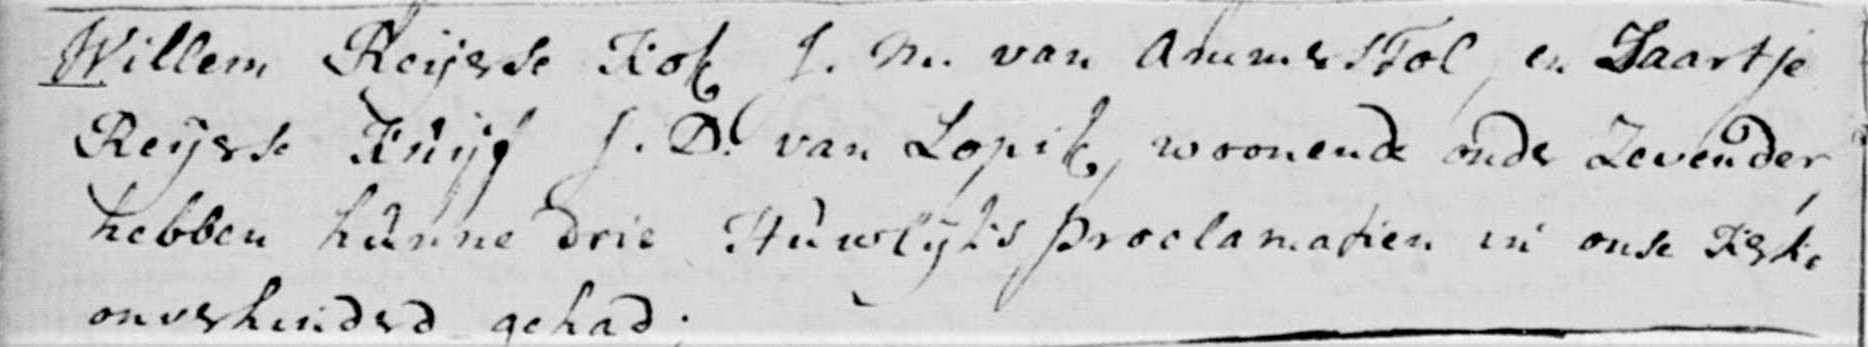 Willem Reijerse Kok J. M. van Ammerstol, en Saartje
Reijerse Kuijf J. D. van Lopik, woonende onder Zevender
hebben hunne drie Huwlijks proclamatien in onse Kerke
onverhinderd gehad.